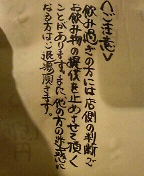 〈ご注意〉
飲み過ぎの方には店側の判断で
お飲み物の提供を止めさせて頂く
ことがあります。また、他の方の迷惑に
なる方はご退場頂きます。